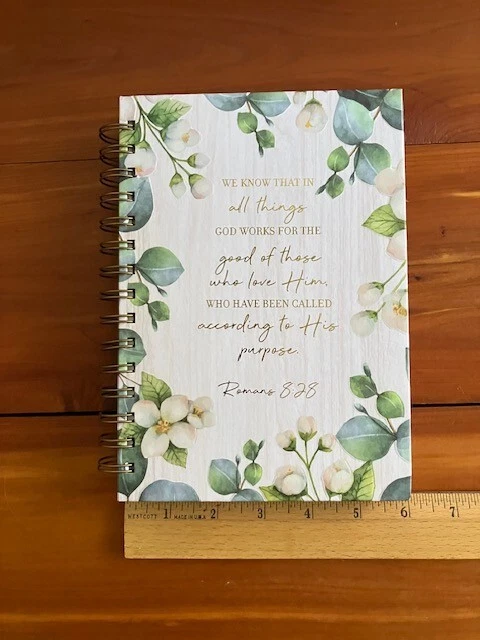 WE KNOW THAT IN
all things
GOD WORKS FOR THE
good of those
who love Him,
WHO HAVE BEEN CALLED
according to His
purpose.
Romans 8:28
1 2 3 4 5 6 7
WESTCOTT MADE IN U.S.A.